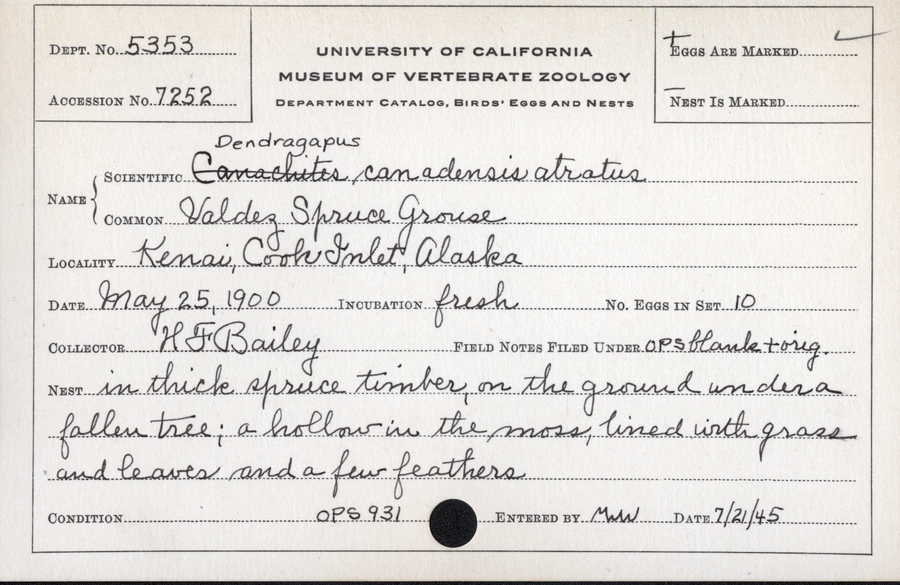 DEPT. No. 5353
ACCESSION No. 7252
UNIVERSITY OF CALIFORNIA
MUSEUM OF VERTEBRATE ZOOLOGY
DEPARTMENT CATALOG, BIRDS' EGGS AND NESTS
EGGS ARE MARKED ✓
NEST IS MARKED
Dendragapus
NAME { SCIENTIFIC Canachites canadensis atratus
COMMON Valdez Spruce Grouse
LOCALITY Kenai, Cook Inlet, Alaska
DATE May 25, 1900 INCUBATION fresh No. EGGS IN SET 10
COLLECTOR H F Bailey FIELD NOTES FILED UNDER OPS blank + orig.
NEST in thick spruce timber, on the ground under a
fallen tree; a hollow in the moss, lined with grass
and leaves and a few feathers
CONDITION OPS 931 ENTERED BY DATE 7/21/45